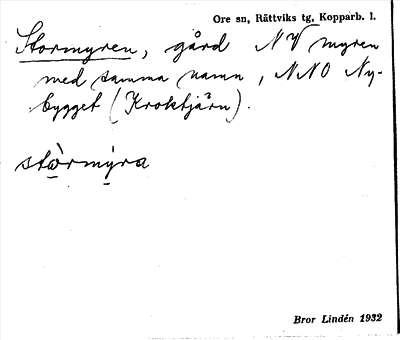 Ore sn, Rättviks tg, Kopparb. l.
Stormyren, gård NV myren
med samma namn, NNO Ny-
bygget (Kroktjärn).
stòrmýra
Bror Lindén 1932